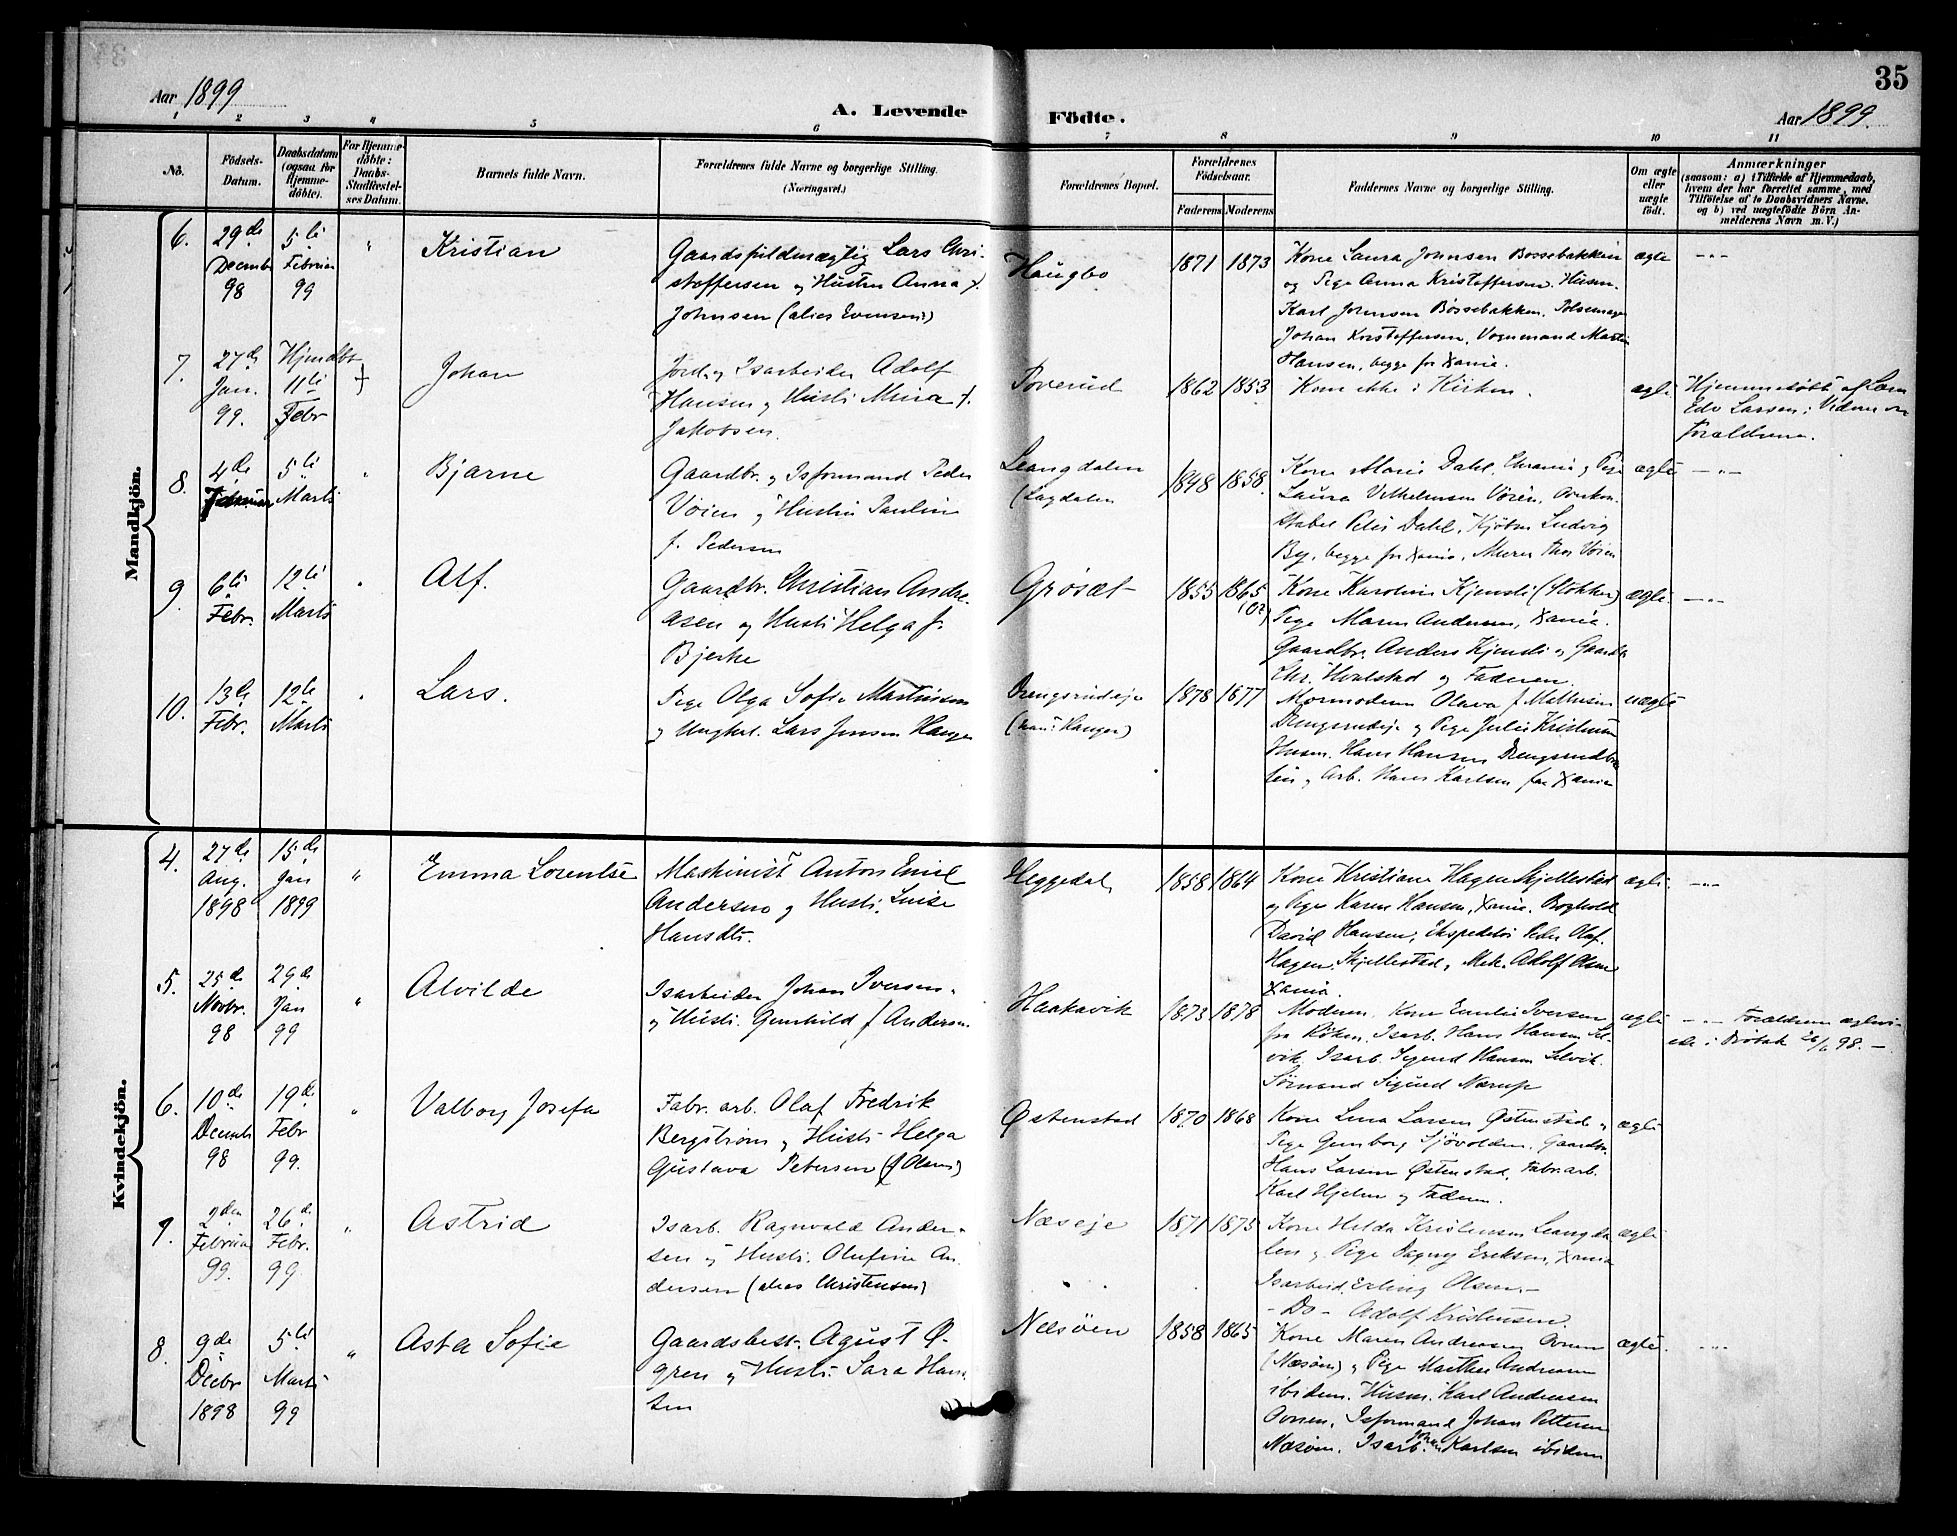 35
Aar 1899
A. Levende Födte.
Aar 1899.
1 2 3 4 5 6 7 8 9 10 11
No.
Födsels-
Datum.
Daabsdatum
(ogsaa for
Hjemme-
döbte).
For Hjemme-
döbte:
Daabs-
Stadfæstel-
ses Datum.
Barnets fulde Navn.
Forældrenes fulde Navne og borgerlige Stilling.
(Næringsvei.)
Forældrenes Bopæl.
Forældrenes
Födselsaar.
Faderens
Moderens
Faddernes Navne og borgerlige Stilling.
Om ægte
eller
uægte
födt.
Anmærkninger
(saasom: a) i Tilfælde af Hjemmedaab,
hvem der har forrettet samme, med
Tilföielse af to Daabsvidners Navne.
og b) ved uægtefödte Börn An-
melderens Navn m. V.)
Mandkjön.
6.
29de
Decemb
98
5te
Februar
99
"
Kristian
Lars Chri-
stoffersen og Hustru Anna f.
Johnsen (alias Evensen)
Haugbo
1871 1873
Kone Laura Johnsen Bossebakken
og Pige Anna Kristoffersen. Husm.
Karl Johnsen Bössebakken.
Johan Kristoffersen, Vognmand Martin
Hansen, begge fr Xania.
ægte
— " —
7.
27de
Jan.
99.
11te
Febr
Johan
Jord og Isarbeider Adolf
Hansen og Hustr. Mina f.
Jakobsen.
Poverud
1862 1853
Kom ikke i Kirken.
ægte
Hjemmedöbt af
Edv Larsen;
Forældrene.
8.
4de
Februar
5te
Marts
"
Bjarne
Gaardbr. og Isformand Peder
Voien og Hustru Paulin
f. Pedersen
Leangdalen
(Lagdalen
1848 1858.
Kone Marie Dahl, Xrania og Pige
Laura Vilhelmsen Vöien,
stabel Peter Dahl, Kjöbm Ludvig
By, begge fr Xania, Murer Thor Voien
ægte
— " —
9.
6te
Febr.
12te
Marts
"
Alf.
Gaardbr. Christian Andre-
asen og Hustr. Helga f.
Bjerke
Grösæt
1855 1865
(62)
Kone Karoline Kjensli (Stokker)
Pige Maren Andersen, Xania.
Gaardbr. Anders Kjensli og Gaardb
Chr. Hvalstad og Faderen.
ægte.
— " —
10.
13de
Febr.
12te
Marts
"
Lars.
Pige Olga Sofie Martinsen
og Ungkrl. Lars Jensen Haugen
Drengsrudeje
1878 1877
Mormoderen Olava f. Mathisen
Drengsrudeje og Pige Julie Kristensen
Husm. Hans Hansen
og Arb. Hans Karlsen fra Xania
uægte
Kvindekjön.
4.
27de
Aug.
1898
15de
Jan
1899
"
Emma Lorentse
Maskinist Anton Emil
Andersen og Hustr. Luise
Hansdtr.
Heggedal
1858 1864
Kone Kristiane Hagen Skjellestad
og Pige Karen Hansen, Xania. Boghold
David Hansen, Ekspeditör Peder Olaf.
Hagen Skjellestad, Mek. Adolf Olsen
Xania.
ægte
— " —
5.
25de
Novbr.
98
29de
Jan
99
"
Alvilde
Isarbeider Johan Iversen
og Hustr. Gunhild f Andersen
Haakavik
1873 1878
Moderen, Kone Emilie Iversen
fra Röken, Isarb. Hans Hansen Sel-
vik, Isarb. Sigurd Hansen Selvik.
Sörmand Sigurd Nærup
ægte
— " — Forældrene ægtevi-
ede i Dröbak 26/6 98. —
6.
10de
Decemb
98
19de
Febr
99.
"
Valborg Josefa
Fabr. arb. Olaf Fredrik
Bergström og Hustr. Helga
Gustava Petersen (f Olsen)
Østenstad
1870 1868
Kone Lina Larsen Østenstad og
Pige Gunborg Sjövolden, Gaardbr.
Hans Larsen Østenstad, Fabr arb.
Karl Hjelm og Faderen.
ægte
7.
2den
Februar
99.
26de
Febr.
99
"
Astrid
Isarb. Ragnvald Ander-
sen og Hustr. Olufine An-
dersen (alias Christensen)
Næseje
1871 1875
Kone Hilda Kristensen Leangda
len og Pige Dagny Eriksen, Xania
Isarbeid. Erling Olsen. —
— Do — Adolf Kristensen.
ægte
8.
9de
Decbr
1898
5te
Marts
99
"
Asta Sofie
Gaardsbest. Agust Ø-
gren og Hustr. Sara Han-
sen
Næsöen
1858 1865
Kone Maren Andreasen Ovnen
(Næsöen) og Pige Marthe Andreasen
ibidem. Husm. Karl Andreasen
Ovnen, Isformand Johan Pettersen
Næsöen. Isarb. Johan Karlsen ibidem
ægte.
— " —